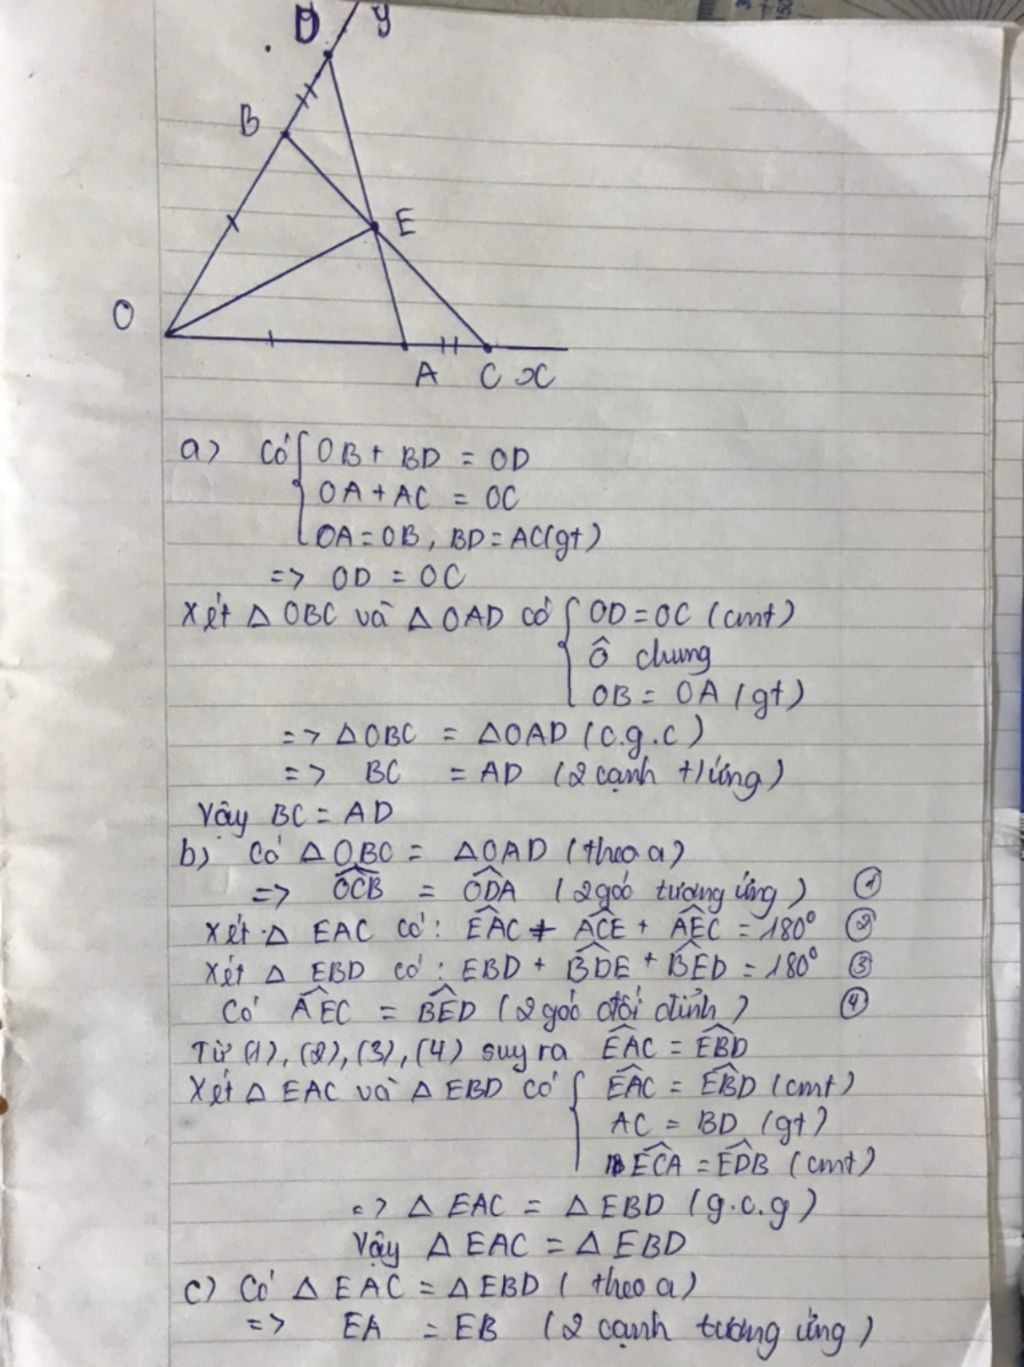 D y
B
E
O
A C x
a) Có { OB + BD = OD
OA + AC = OC
OA = OB, BD = AC(gt)
=> OD = OC
Xét Δ OBC và Δ OAD có { OD = OC (cmt)
Ô chung
OB = OA (gt)
=> ΔOBC = ΔOAD (c.g.c)
=> BC = AD (2 cạnh t/ứng)
Vậy BC = AD
b) Có Δ OBC = ΔOAD (theo a)
=> \widehat{OCB} = \widehat{ODA} (2 góc tương ứng) ①
Xét Δ EAC có: \widehat{EAC} + \widehat{ACE} + \widehat{AEC} = 180° ②
Xét Δ EBD có: EBD + \widehat{BDE} + \widehat{BED} = 180° ③
Có \widehat{AEC} = \widehat{BED} (2 góc đối đỉnh) ④
Từ (1), (2), (3), (4) suy ra \widehat{EAC} = \widehat{EBD}
Xét Δ EAC và Δ EBD có { \widehat{EAC} = \widehat{EBD} (cmt)
AC = BD (gt)
\widehat{ECA} = \widehat{EDB} (cmt)
=> Δ EAC = Δ EBD (g.c.g)
Vậy Δ EAC = Δ EBD
c) Có Δ EAC = Δ EBD ( theo a)
=> EA = EB (2 cạnh tương ứng)